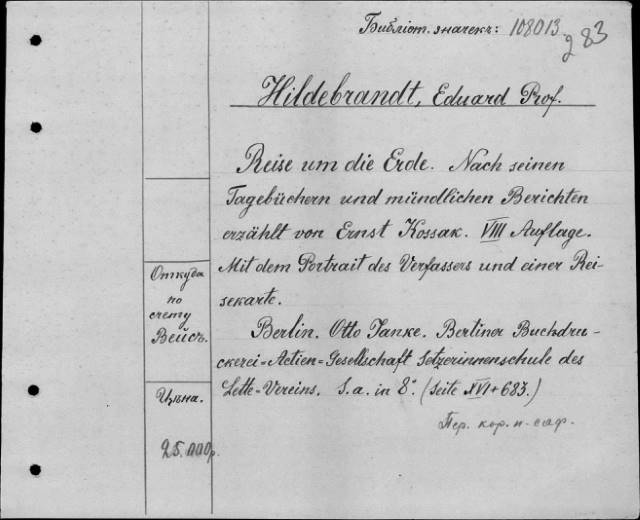 Библіот. значекъ: 108013.
283
Hildebrandt, Eduard Prof.
Reise um die Erde. Nach seinen
Tagebüchern und mündlichen Berichten
erzählt von Ernst Kossak. VIII Auflage.
Mit dem Portrait des Verfassers und einer Rei-
sekarte.
Berlin. Otto Janke. Berliner Buchdru-
ckerei=Actien=Gesellschaft Setzerinnenschule des
Lette=Vereins. S. a. in 8°. (Seite XVI+683.)
Пер. кор. п. саф.
Откуда
по
счету
Вейсъ.
Цѣна.
25.000р.